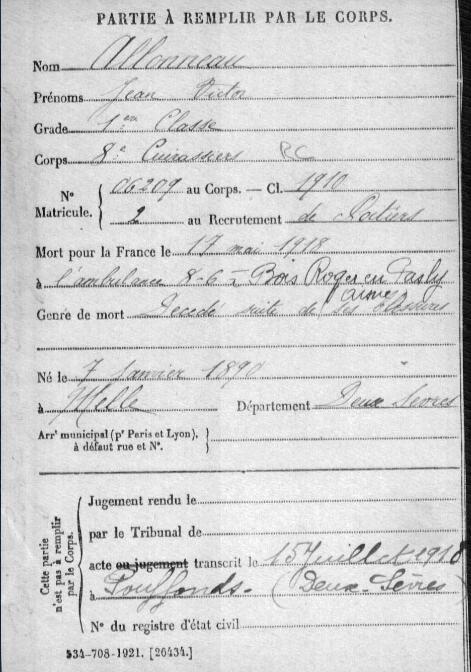 PARTIE À REMPLIR PAR LE CORPS.
Nom Allonneau
Prénoms Jean Victor
Grade 1ère Classe
Corps 8e Cuirassiers RC
N° Matricule. { 06209 au Corps. — Cl. 1910
2 au Recrutement de Poitiers
Mort pour la France le 17 mai 1918
à l'ambulance 8-6 Bois Roger en Pasly
Aisne
Genre de mort Décédé suite de ses blessures
Né le 7 Janvier 1890
à Melle Département Deux Sèvres
Arrt municipal (pr Paris et Lyon),
à défaut rue et N°.
Cette partie n'est pas à remplir par le Corps.
Jugement rendu le
par le Tribunal de
acte ou jugement transcrit le 15 Juillet 1918
à Pouffonds. (Deux-Sèvres)
N° du registre d'état civil
534-708-1921. [26434.]